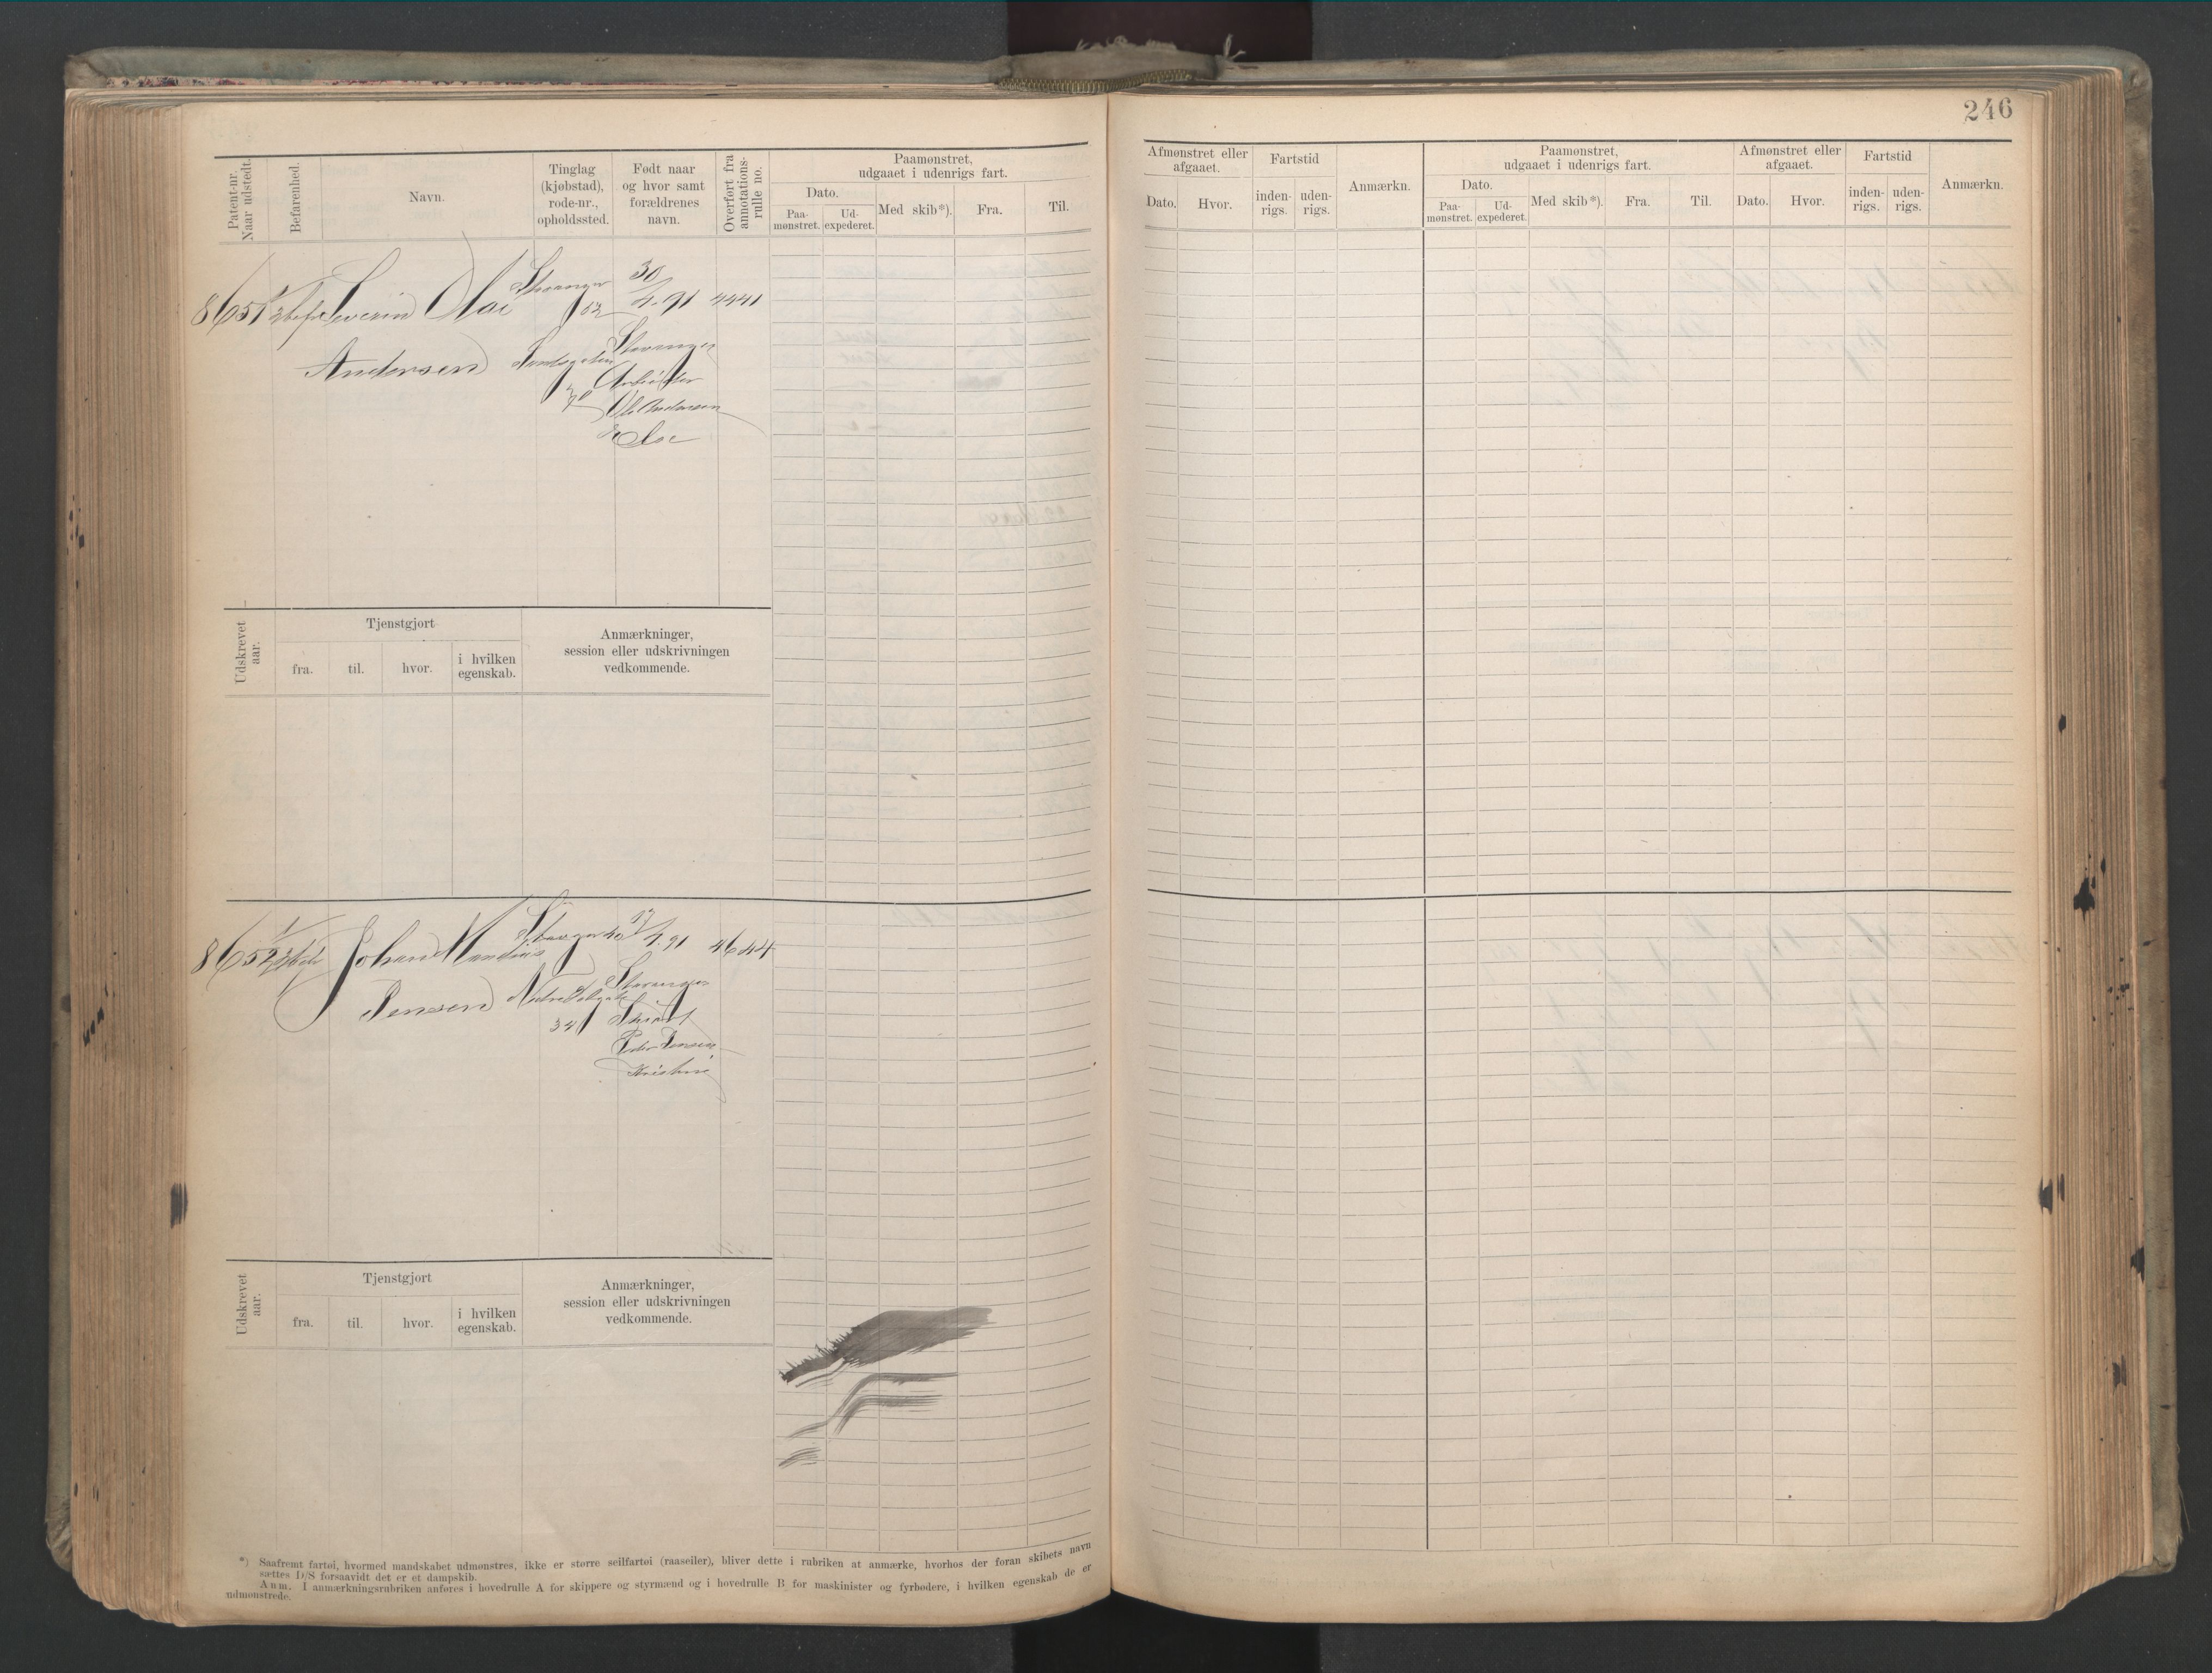 246
Patent-nr. Naar udstedt.
Befarenhed.
Navn.
Tinglag (kjøbstad), rode-nr., opholdssted.
Født naar og hvor samt forældrenes navn.
Overført fra annotations-rulle no.
Paamønstret, udgaaet i udenrigs fart.
Dato.
Paa-mønstret.
Ud-expederet.
Med skib*).
Fra.
Til.
Afmønstret eller afgaaet.
Dato.
Hvor.
Fartstid
inden-rigs.
uden-rigs.
Anmærkn.
Paamønstret, udgaaet i udenrigs fart.
Dato.
Paa-mønstret.
Ud-expederet.
Med skib*).
Fra.
Til.
Afmønstret eller afgaaet.
Dato.
Hvor.
Fartstid
inden-rigs.
uden-rigs.
Anmærkn.
8651 Severin Olai Stavanger 30/4.91 4441
Andersen Stavanger
Arbeider
Ole Andersen
Else
Udskrevet aar.
Tjenstgjort
fra.
til.
hvor.
i hvilken egenskab.
Anmærkninger, session eller udskrivningen vedkommende.
8652 Johan Mandius Stavanger 17/4.91 4644
Jensen Stavanger
34
Peder Jensen
Kristine
Udskrevet aar.
Tjenstgjort
fra.
til.
hvor.
i hvilken egenskab.
Anmærkninger, session eller udskrivningen vedkommende.
*) Saafremt fartøi, hvormed mandskabet udmønstres, ikke er større seilfartøi (raaseiler), bliver dette i rubriken at anmærke, hvorhos der foran skibets navn
sættes D/S forsaavidt det er et dampskib.
Anm. I anmærkningsrubriken anføres i hovedrulle A for skippere og styrmænd og i hovedrulle B for maskinister og fyrbødere, i hvilken egenskab de er
udmønstrede.